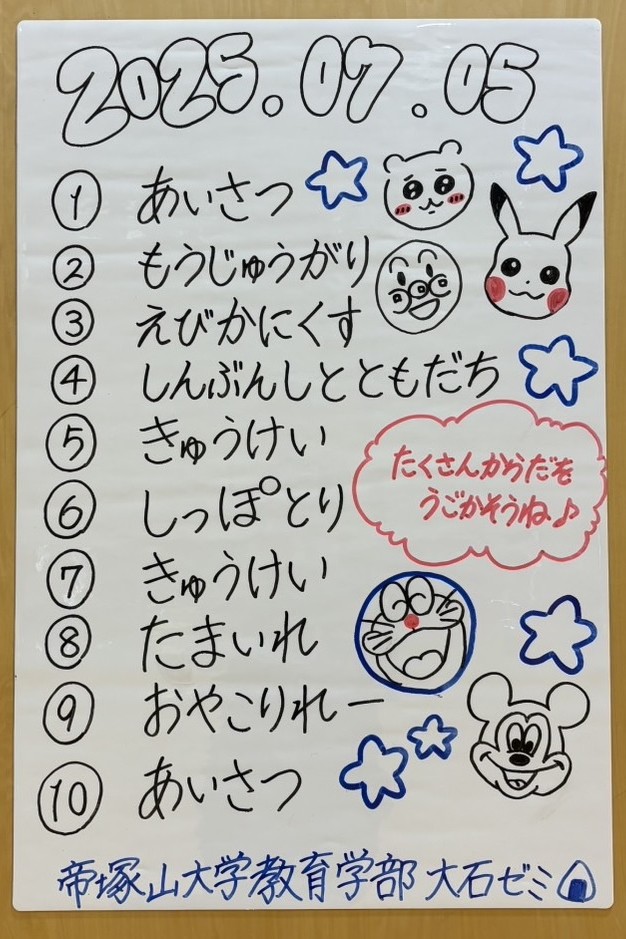 2025.07.05
① あいさつ
② もうじゅうがり
③ えびかにくす
④ しんぶんしとともだち
⑤ きゅうけい
たくさんからだを
うごかそうね♪
⑥ しっぽとり
⑦ きゅうけい
⑧ たまいれ
⑨ おやこりれー
⑩ あいさつ
帝塚山大学教育学部 大石ゼミ